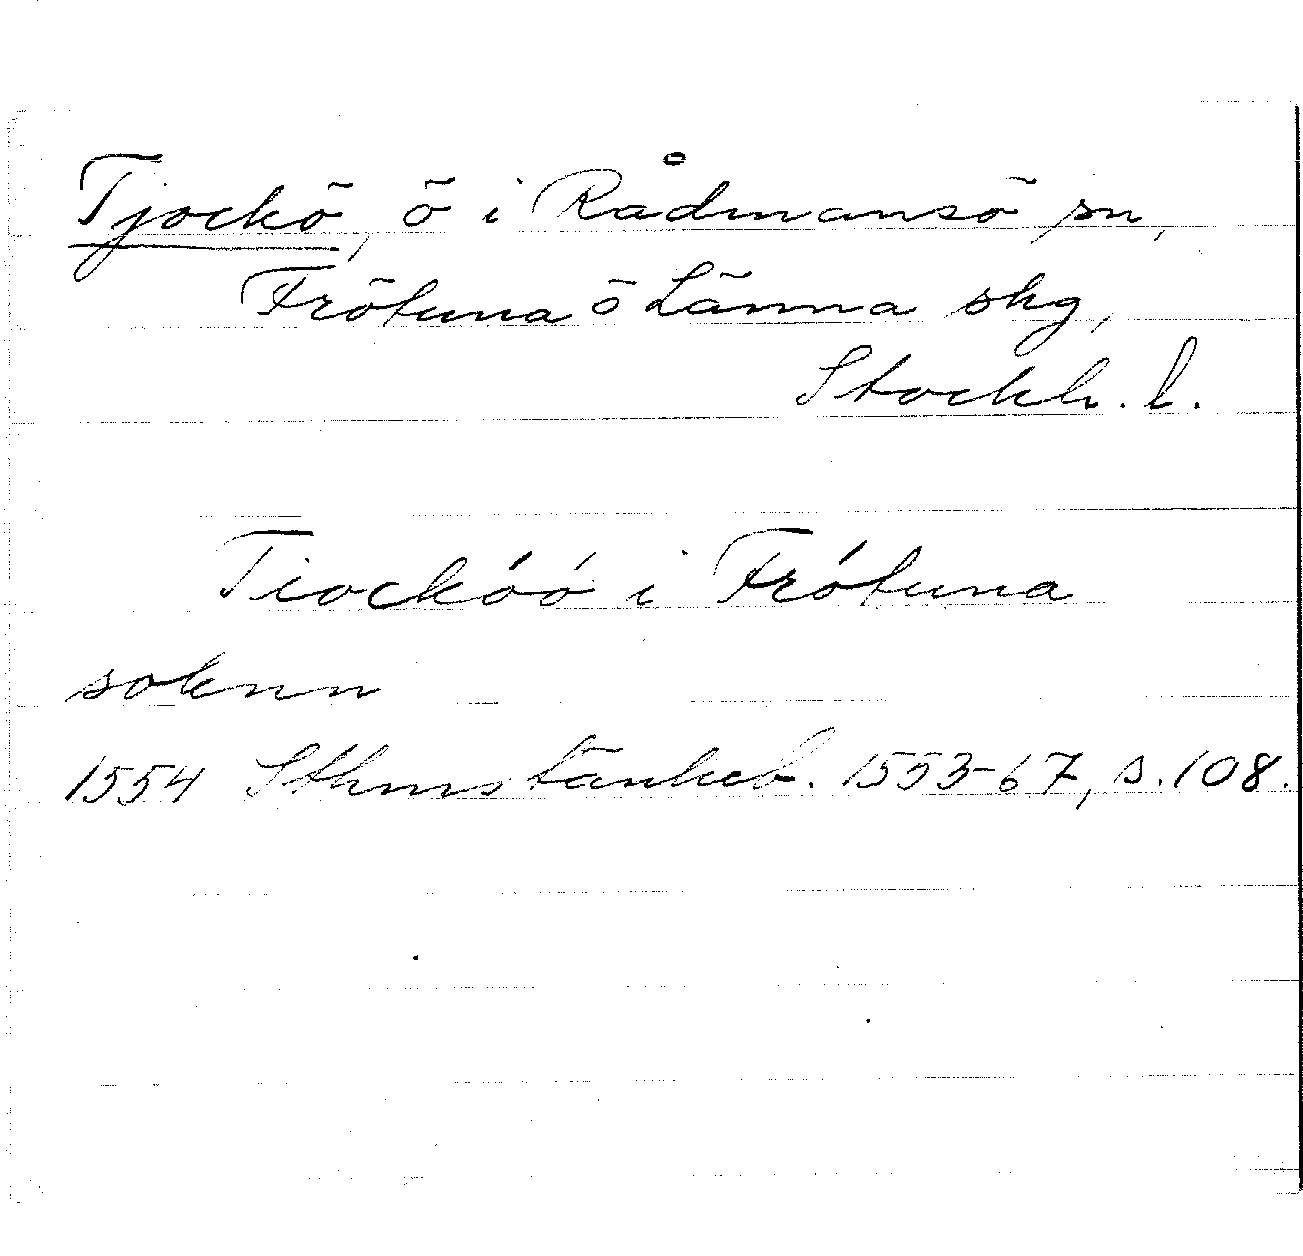 Tjockö, ö i Rådmansö sn,
Frötuna o Länna skg,
Stockh. l.
Tiockóó i Frótuna
soknn
1554 Sthms tänkeb. 1553-67, s. 108.